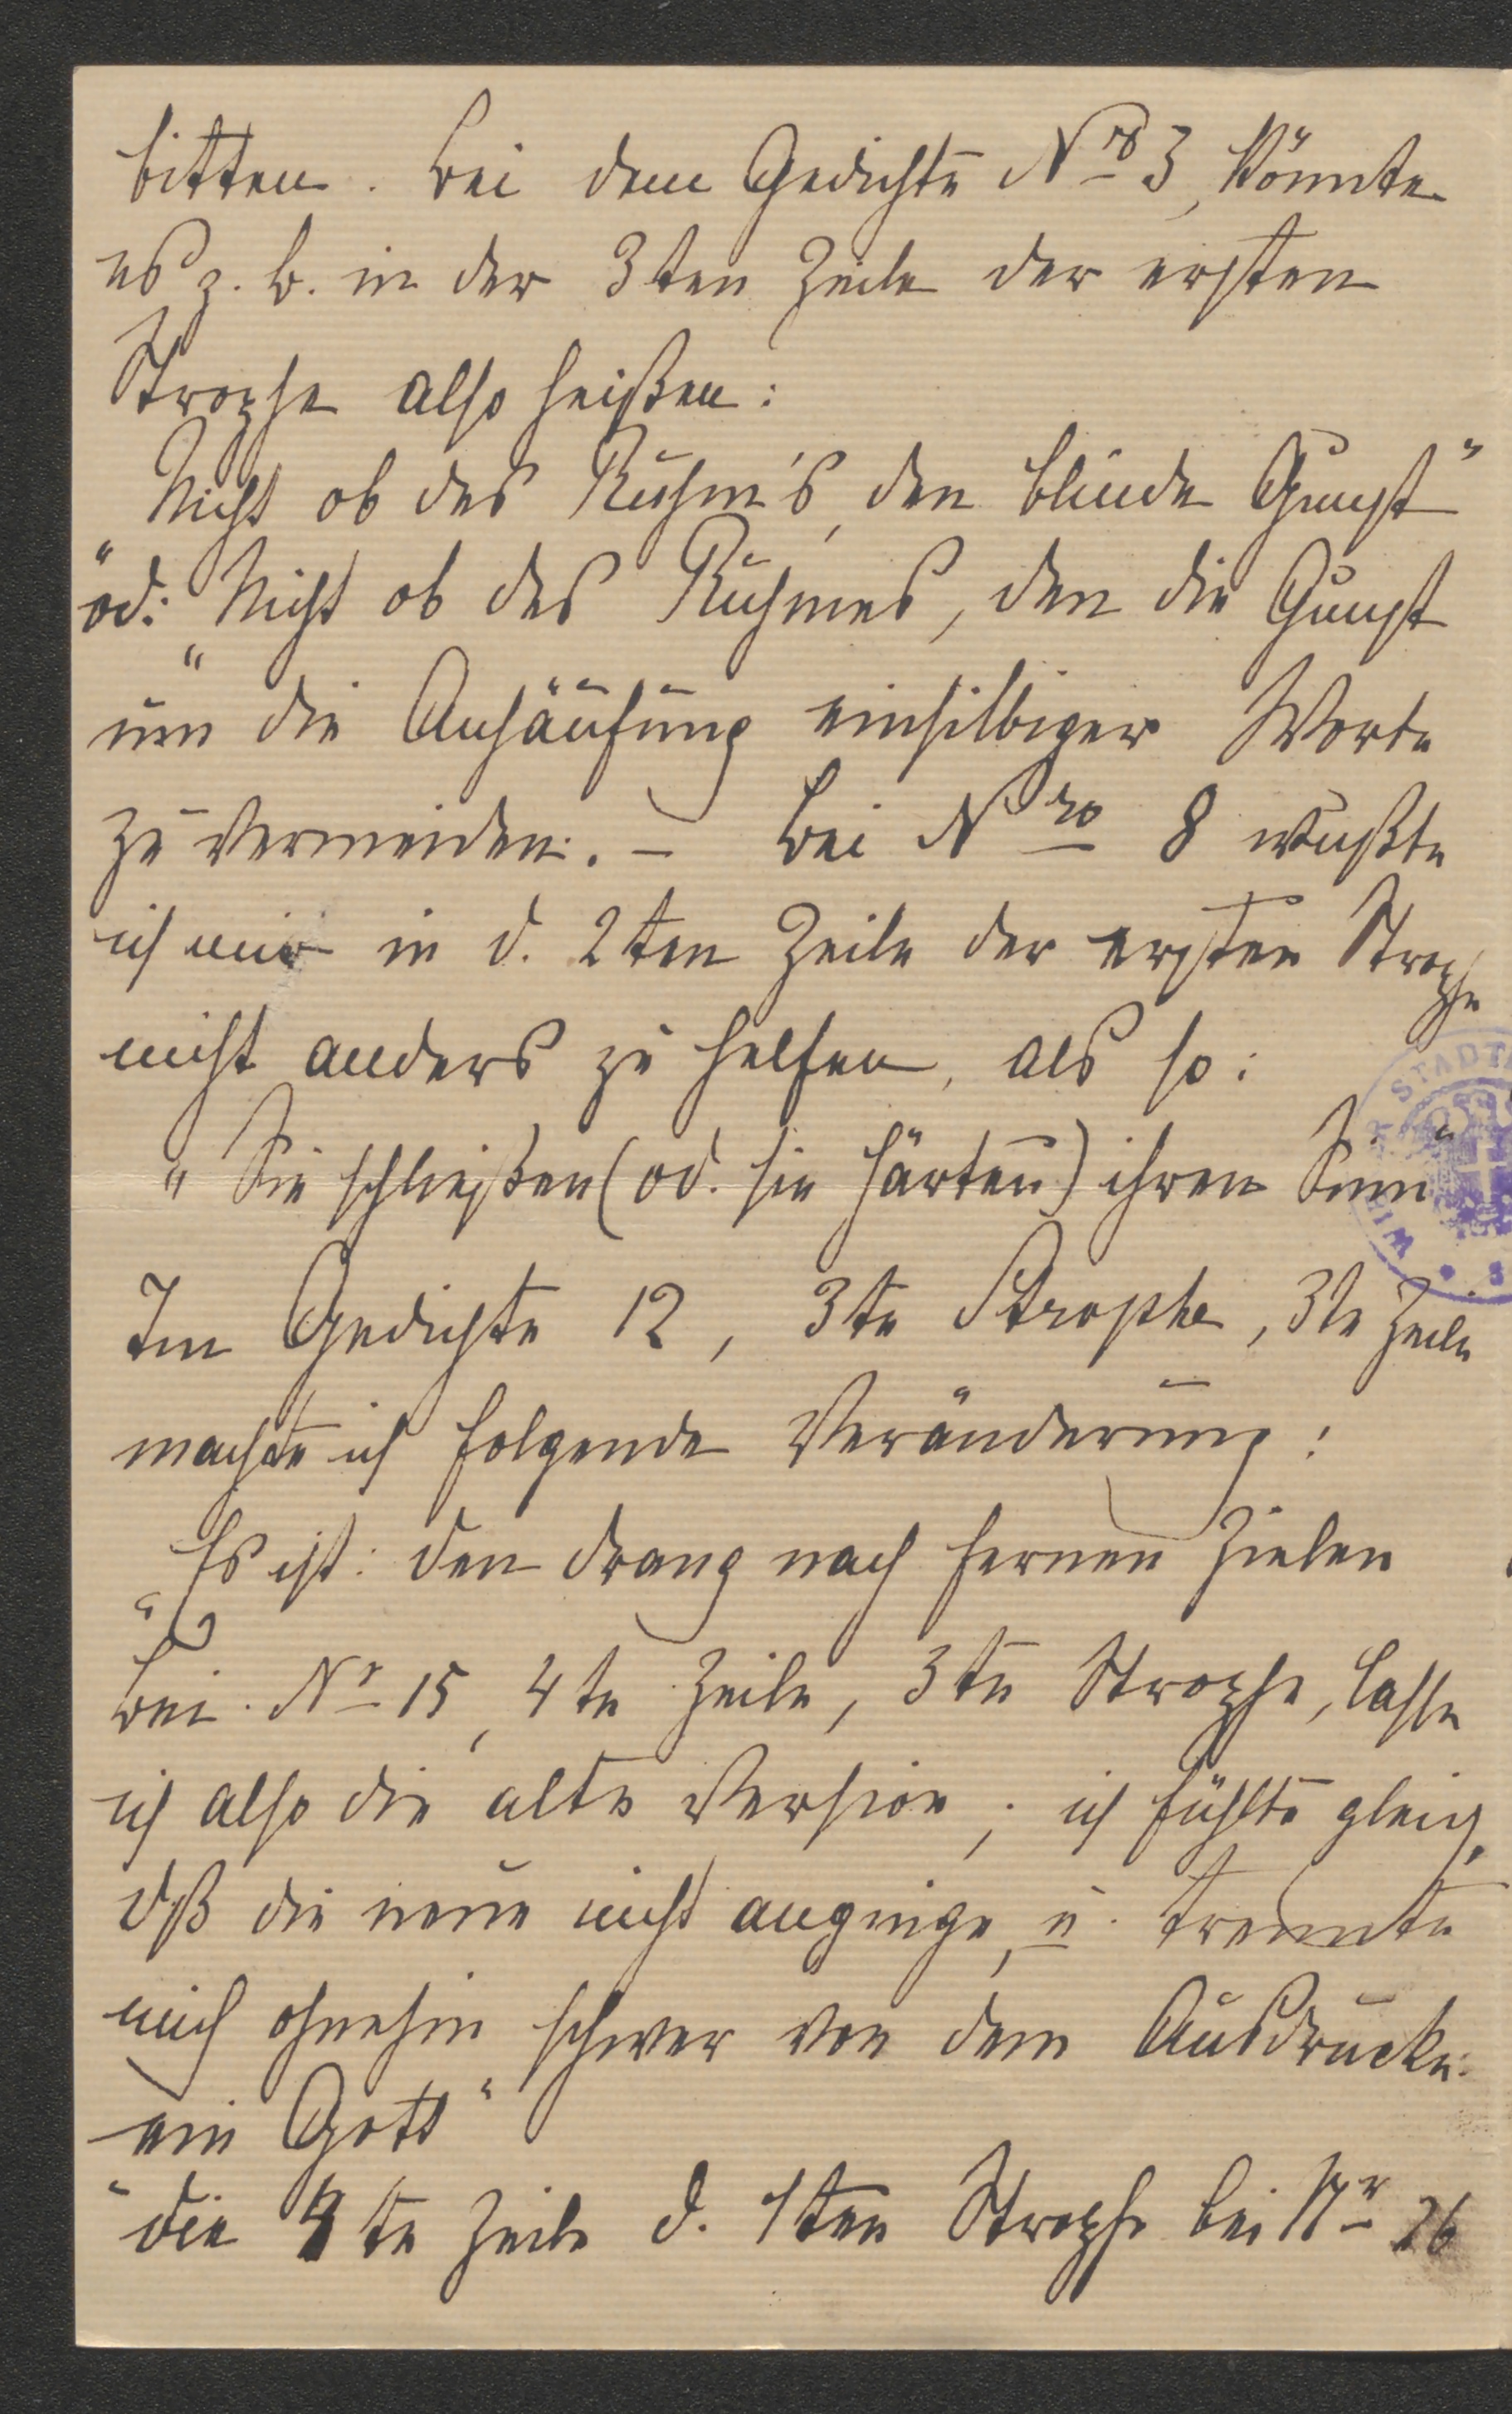 bitten. Bei dem Gedichte Nro 3, könnte
es z. B. in der 3ten Zeile der ersten
Strophe also heißen:
Nicht ob des Ruhm's, den blinde Gunst"
"od: Nicht ob des Ruhmes, den die Gunst
"
um die Anhäufung einsilbiger Worte
zu vermeiden. – Bei Nro 8 wußte
ich mir in d. 2ten Zeile der ersten Strophe
nicht anders zu helfen, als so:
"Sie schließen (od. sie härten) ihren Sinn"
Im Gedichte 12, 3te Strophe, 3te Zeile
machte ich folgende Veränderung:
Es ist: den Drang nach fernen Zielen
"
Bei Nr 15, 4te Zeile, 3te Strophe, lasse
ich also die alte Version; ich fühlte gleich,
dß die neue nicht anginge, u. trennte
mich ohnehin schwer von dem Ausdrucke:
ein Gott"
"die 4te Zeile d. 1ten Strophe bei Nr 26
STADT
WIENER